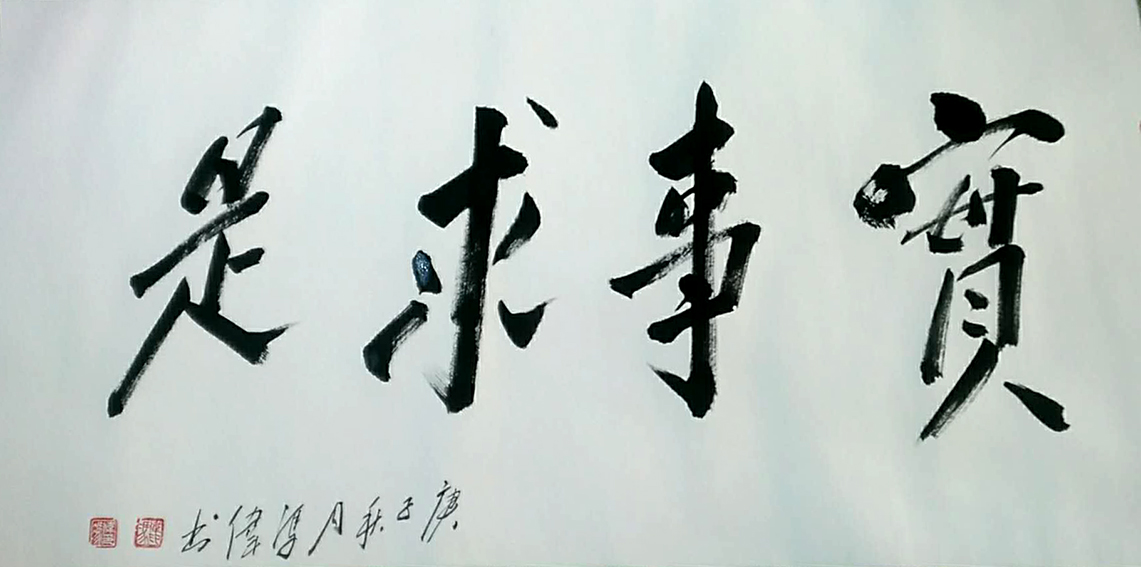 實事求是
庚子秋月偉书